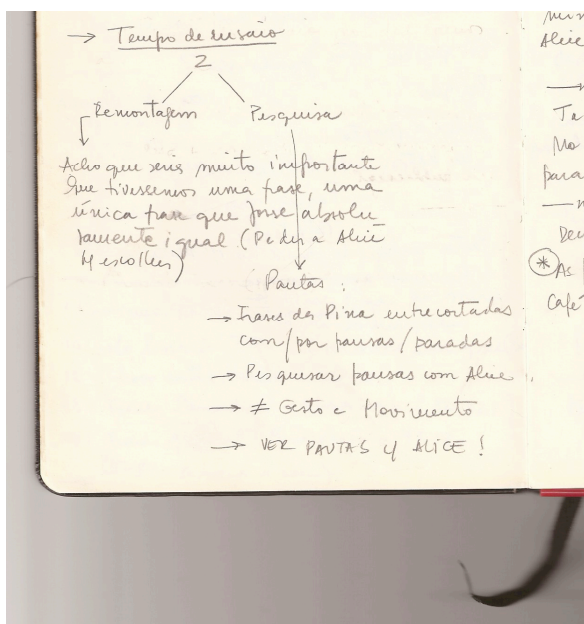 → Tempo de ensaio
2
Remontagem Pesquisa
Acho que seria muito importante
que tivessemos uma frase, uma
única frase que fosse absolu
tamente igual (Pedir a Alice
escolher)
Pautas :
→ Frases da Pina entrecortadas
com/por pausas/paradas
→ Pesquisar pausas com Alice
→ ≠ Gesto e Movimento
→ VER PAUTAS c/ ALICE !
Alice
→
Ta
para
*As
café